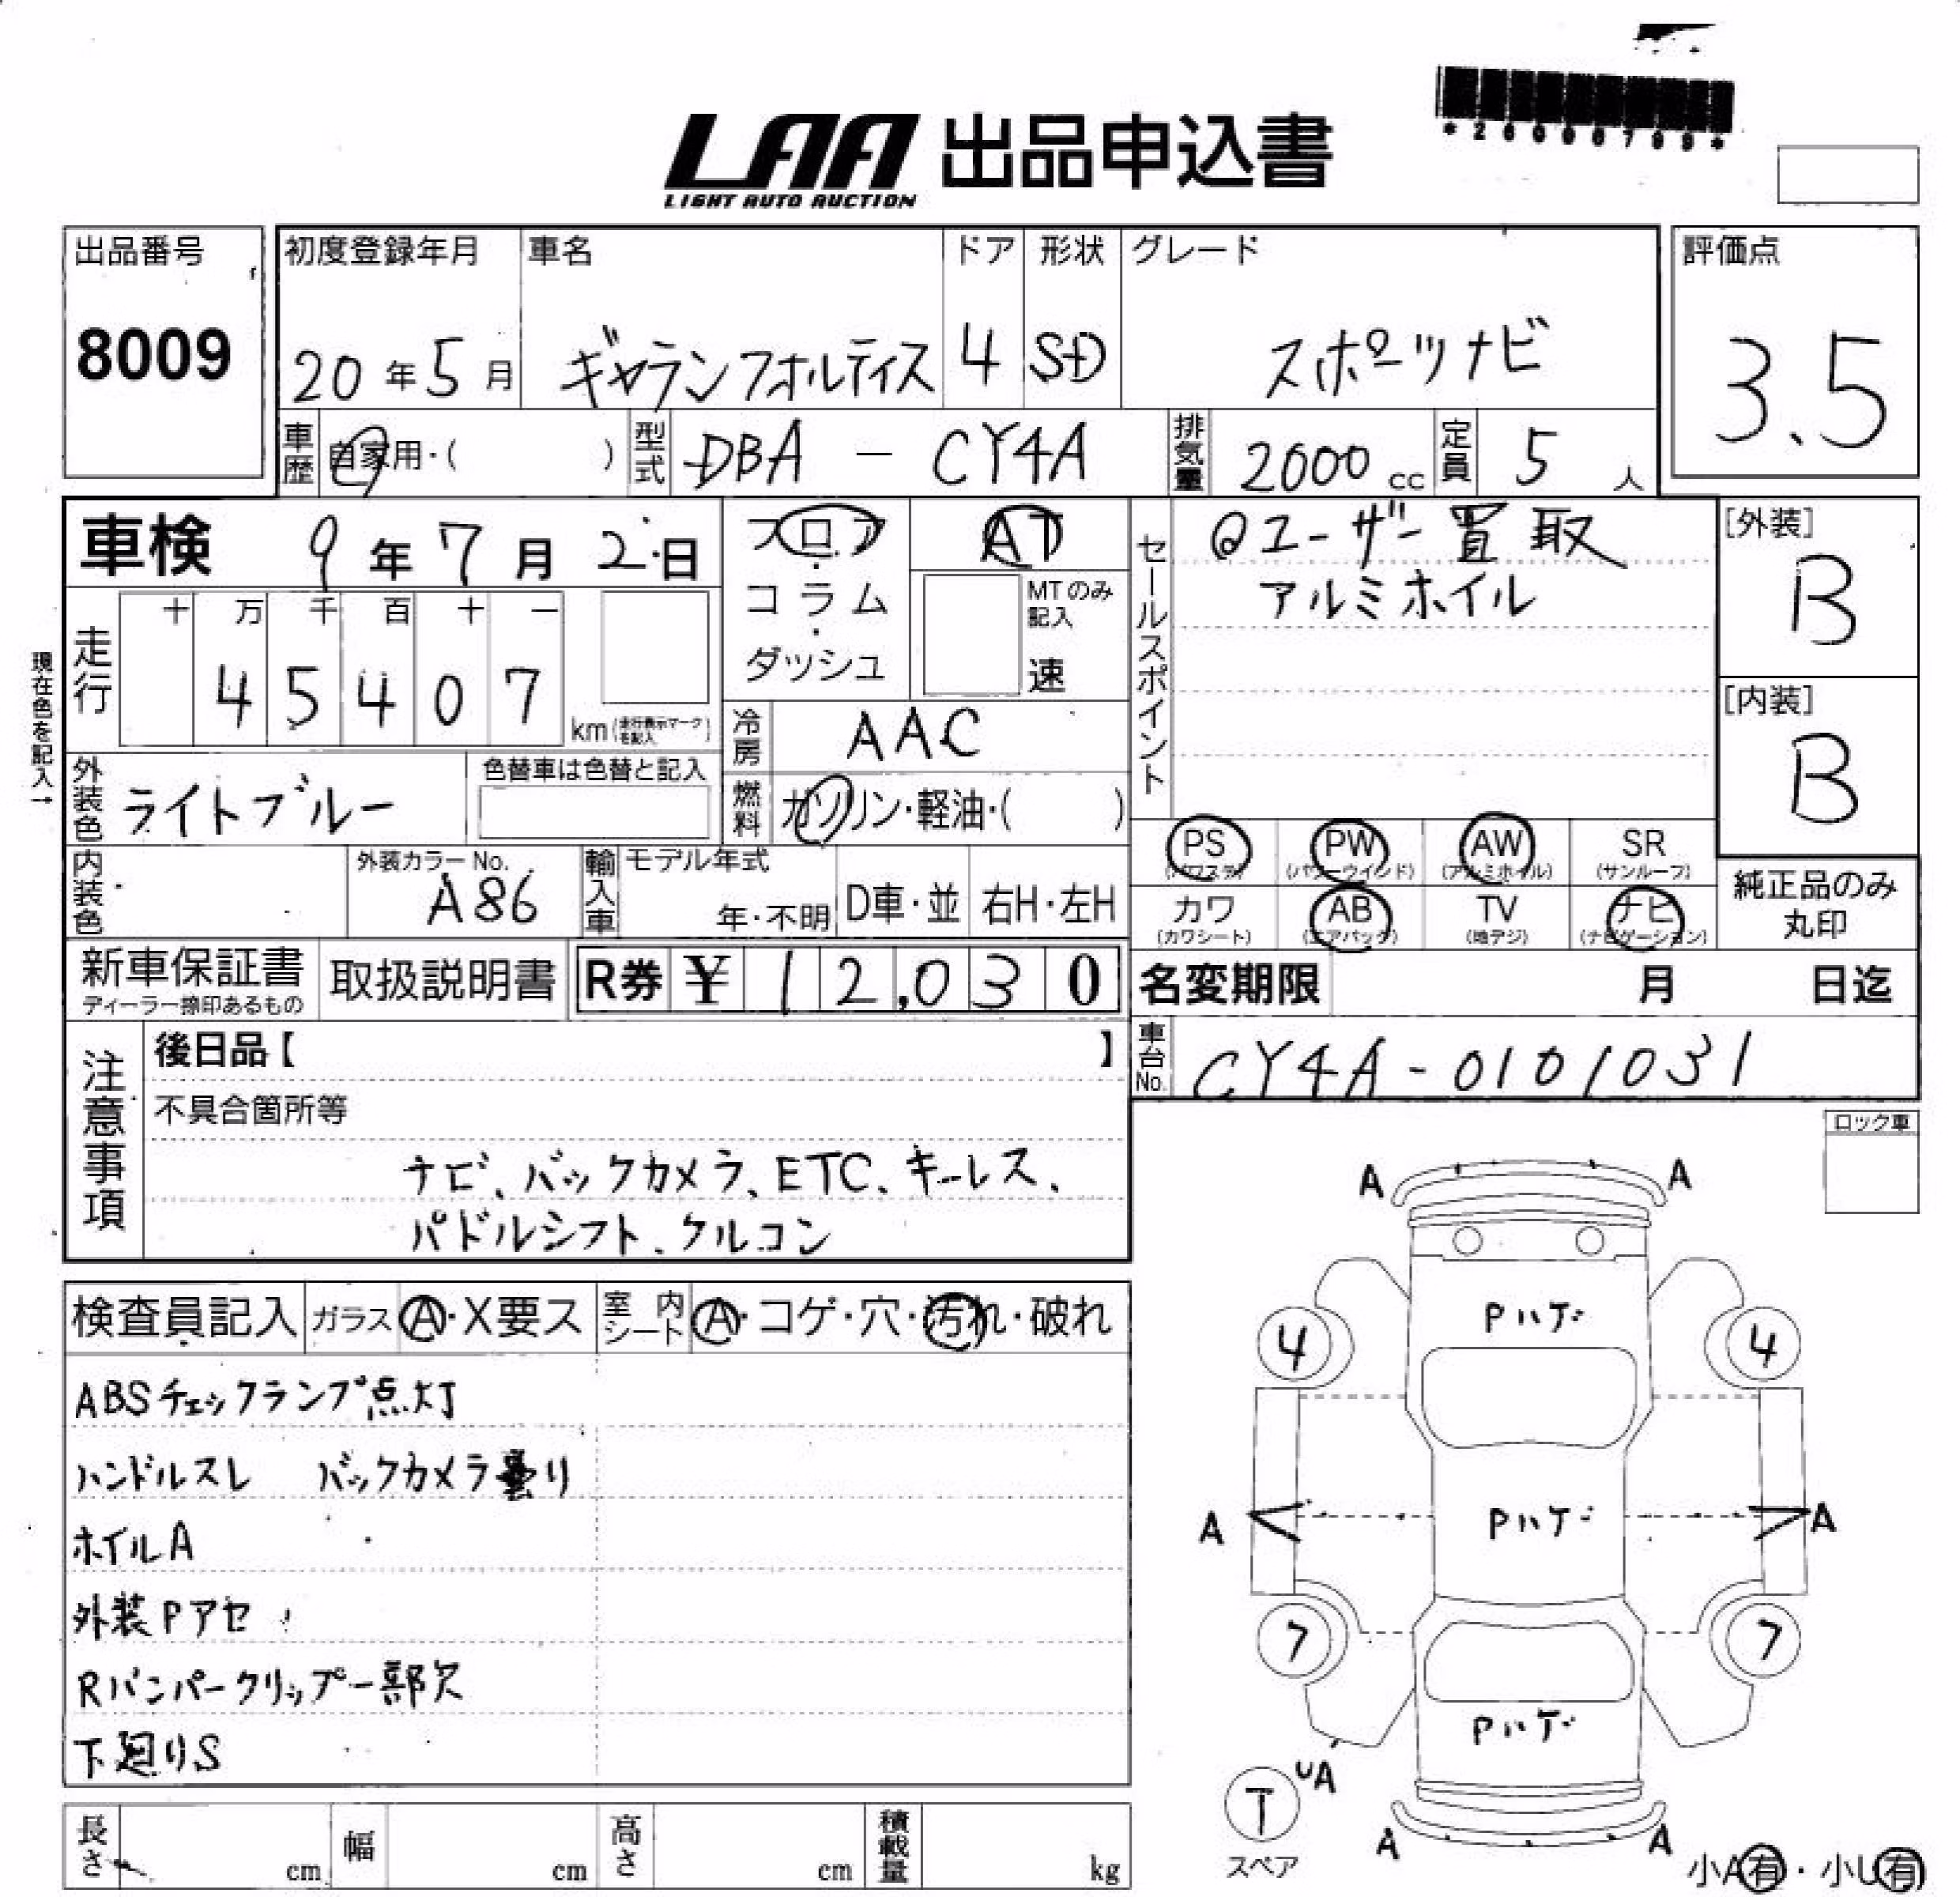 *26000799*
LAA 出品申込書
LIGHT AUTO AUCTION
出品番号 初度登録年月 車名 ドア 形状 グレード 評価点
8009 20年5月 ギャランフォルティス 4 SD スポーツナビ 3.5
車歴 自家用・( ) 型式 DBA - CY4A 排気量 2000cc 定員 5人
車検 9年7月2日 フロア・コラム・ダッシュ AT
MTのみ記入 速
セールスポイント @ユーザー買取
アルミホイル
[外装] B
[内装] B
現在色を記入→
走行 十 万 千 百 十 一
4 5 4 0 7 km(走行表示マークを記入)
冷房 AAC
外装色 ライトブルー 色替車は色替と記入
燃料 ガソリン・軽油・( )
PS (パワステ) PW (パワーウインド) AW (アルミホイル) SR (サンルーフ)
カワ (カワシート) AB (エアバック) TV (地デジ) ナビ (ナビゲーション)
純正品のみ丸印
内装色 外装カラーNo. A86 輸入車 モデル年式 年・不明 D車・並 右H・左H
新車保証書 ディーラー捺印あるもの 取扱説明書 R券 ¥ 12,030
名変期限 月 日迄
車台No. CY4A-0101031
注意事項 後日品【 】
不具合箇所等
ナビ、バックカメラ、ETC、キーレス、
パドルシフト、クルコン
ロック車
検査員記入 ガラス A・X要ス 室内シート A・コゲ・穴・汚れ・破れ
ABSチェックランプ点灯
ハンドルスレ バックカメラ曇り
ホイルA
外装Pアセ
Rバンパークリップ一部欠
下廻りS
A A
Pハゲ
4 4
A Pハゲ A
7 7
Pハゲ
UA
T
スペア
A A
小A有・小U有
長さ cm 幅 cm 高さ cm 積載量 kg